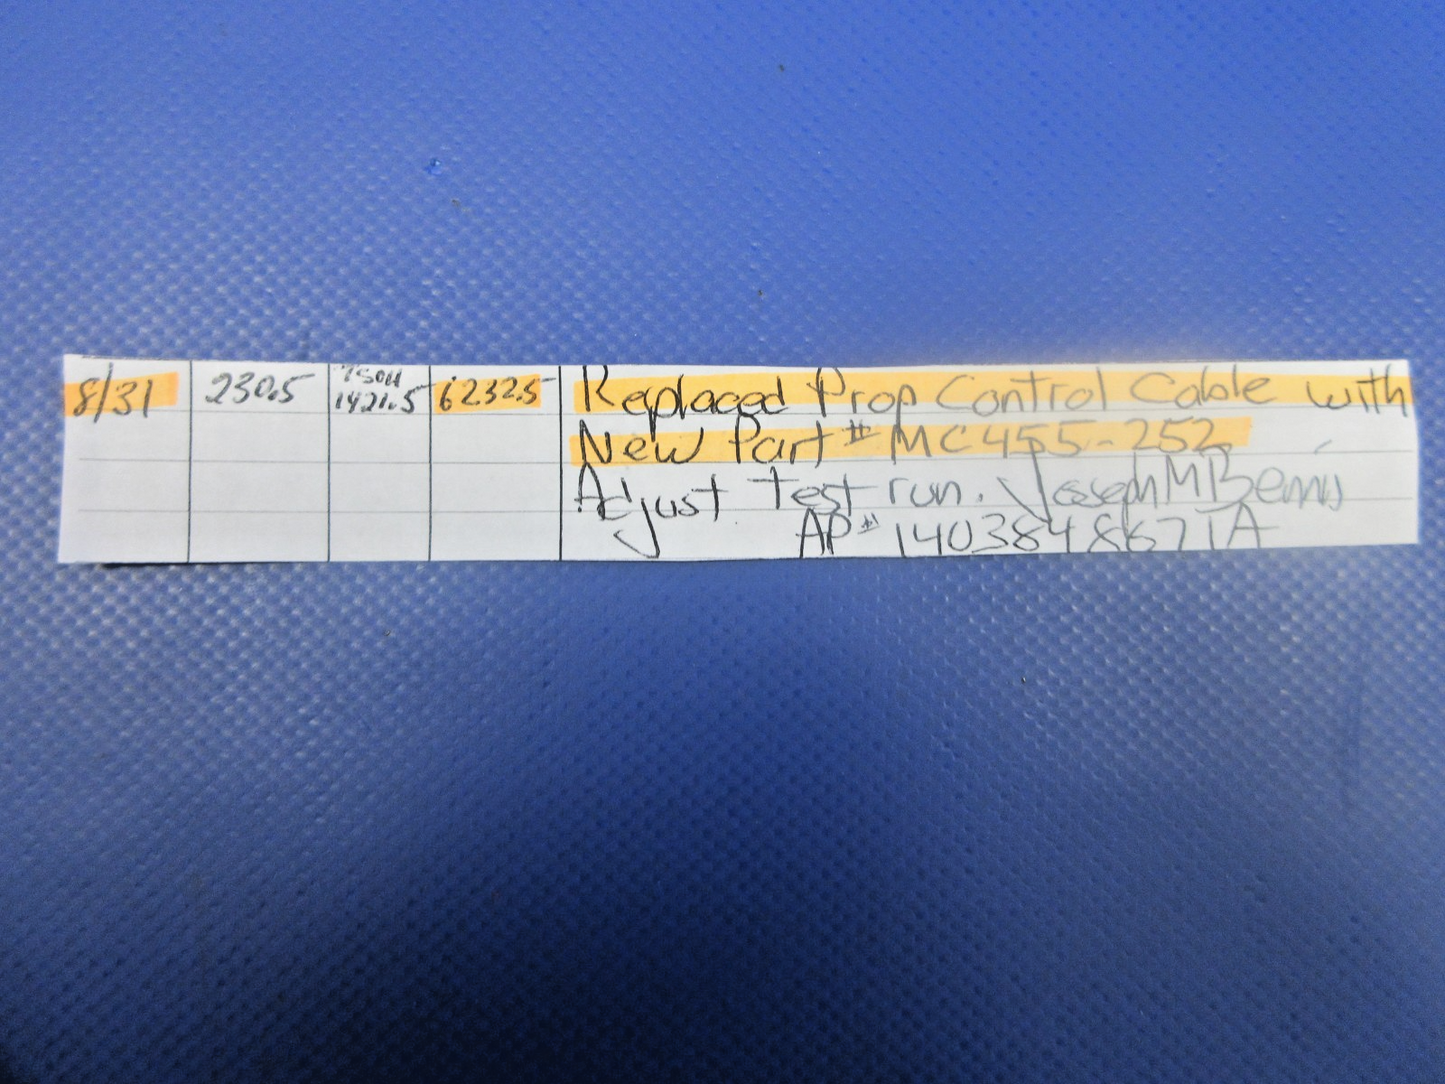 8/31 230.5 TSOH 1421.5 6232.5 Replaced Prop Control Cable with
New Part # MC455-252
Adjust Test run. Joseph M Bemis
AP# 140384867IA